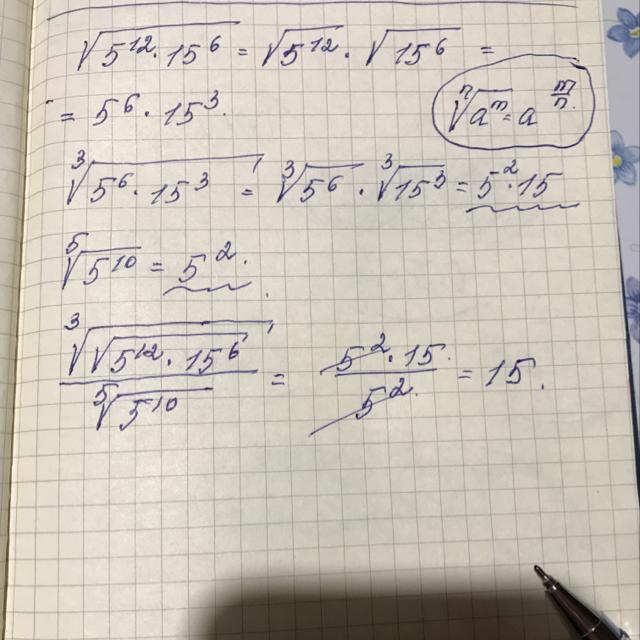 √(5¹²·15⁶) = √(5¹²)·√(15⁶) =
= 5⁶·15³.
ⁿ√(aᵐ) = a^(m/n)
³√(5⁶·15³) = ³√(5⁶)·³√(15³) = 5²·15
⁵√(5¹⁰) = 5².
³√(√(5¹²·15⁶)) / ⁵√(5¹⁰) = 5²·15 / 5² = 15.